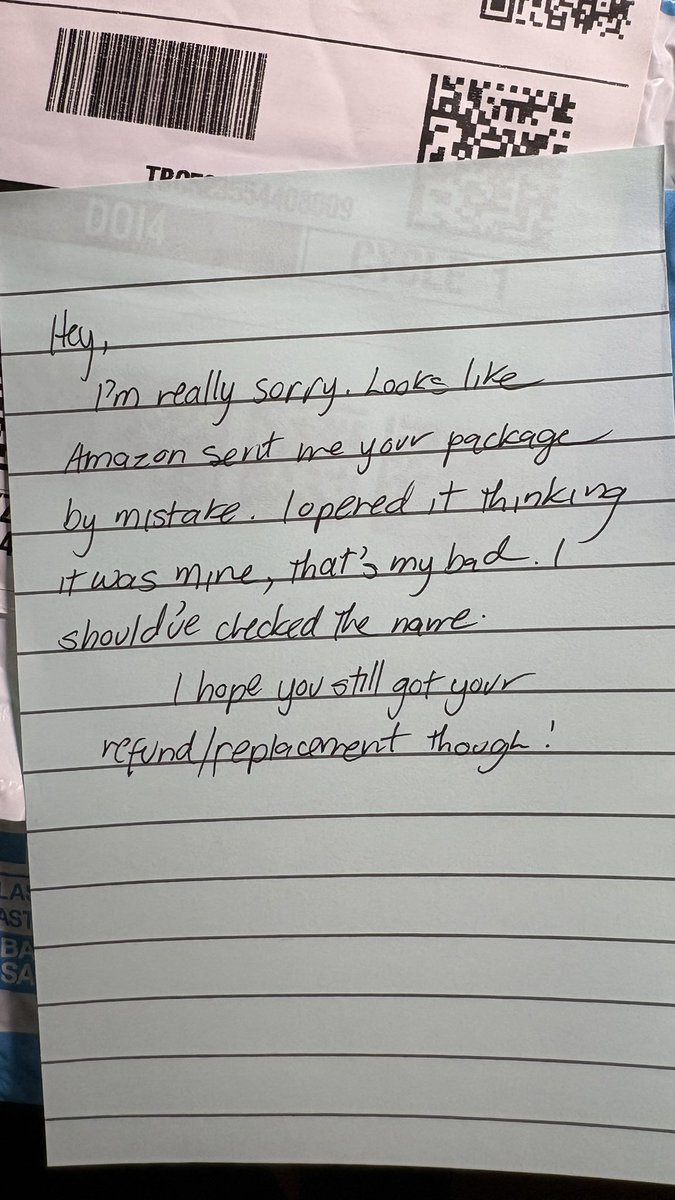 DOI4
CYCLE 1
Hey,
I'm really sorry. Looks like
Amazon sent me your package
by mistake. I opened it thinking
it was mine, that's my bad. I
should've checked the name.
I hope you still got your
refund/replacement though!
BA
SA